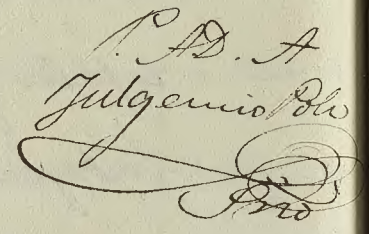 P. A D. A
Fulgencio Polo
Pzo